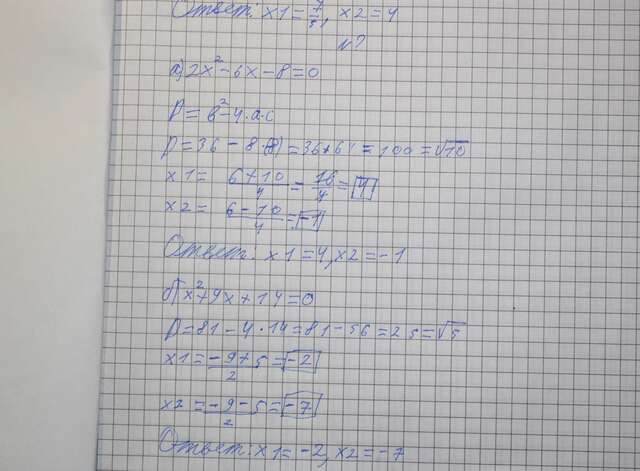 Ответ: x1 = 7/5, x2 = 4
№2
а) 2x² - 6x - 8 = 0
D = b² - 4·a·c
D = 36 - 8·(-8) = 36 + 64 = 100 = √10
x1 = (6 + 10)/4 = 16/4 = 4
x2 = (6 - 10)/4 = -1
Ответ: x1 = 4, x2 = -1
б) x² + 9x + 14 = 0
D = 81 - 4·14 = 81 - 56 = 25 = √5
x1 = (-9 + 5)/2 = -2
x2 = (-9 - 5)/2 = -7
Ответ: x1 = -2, x2 = -7